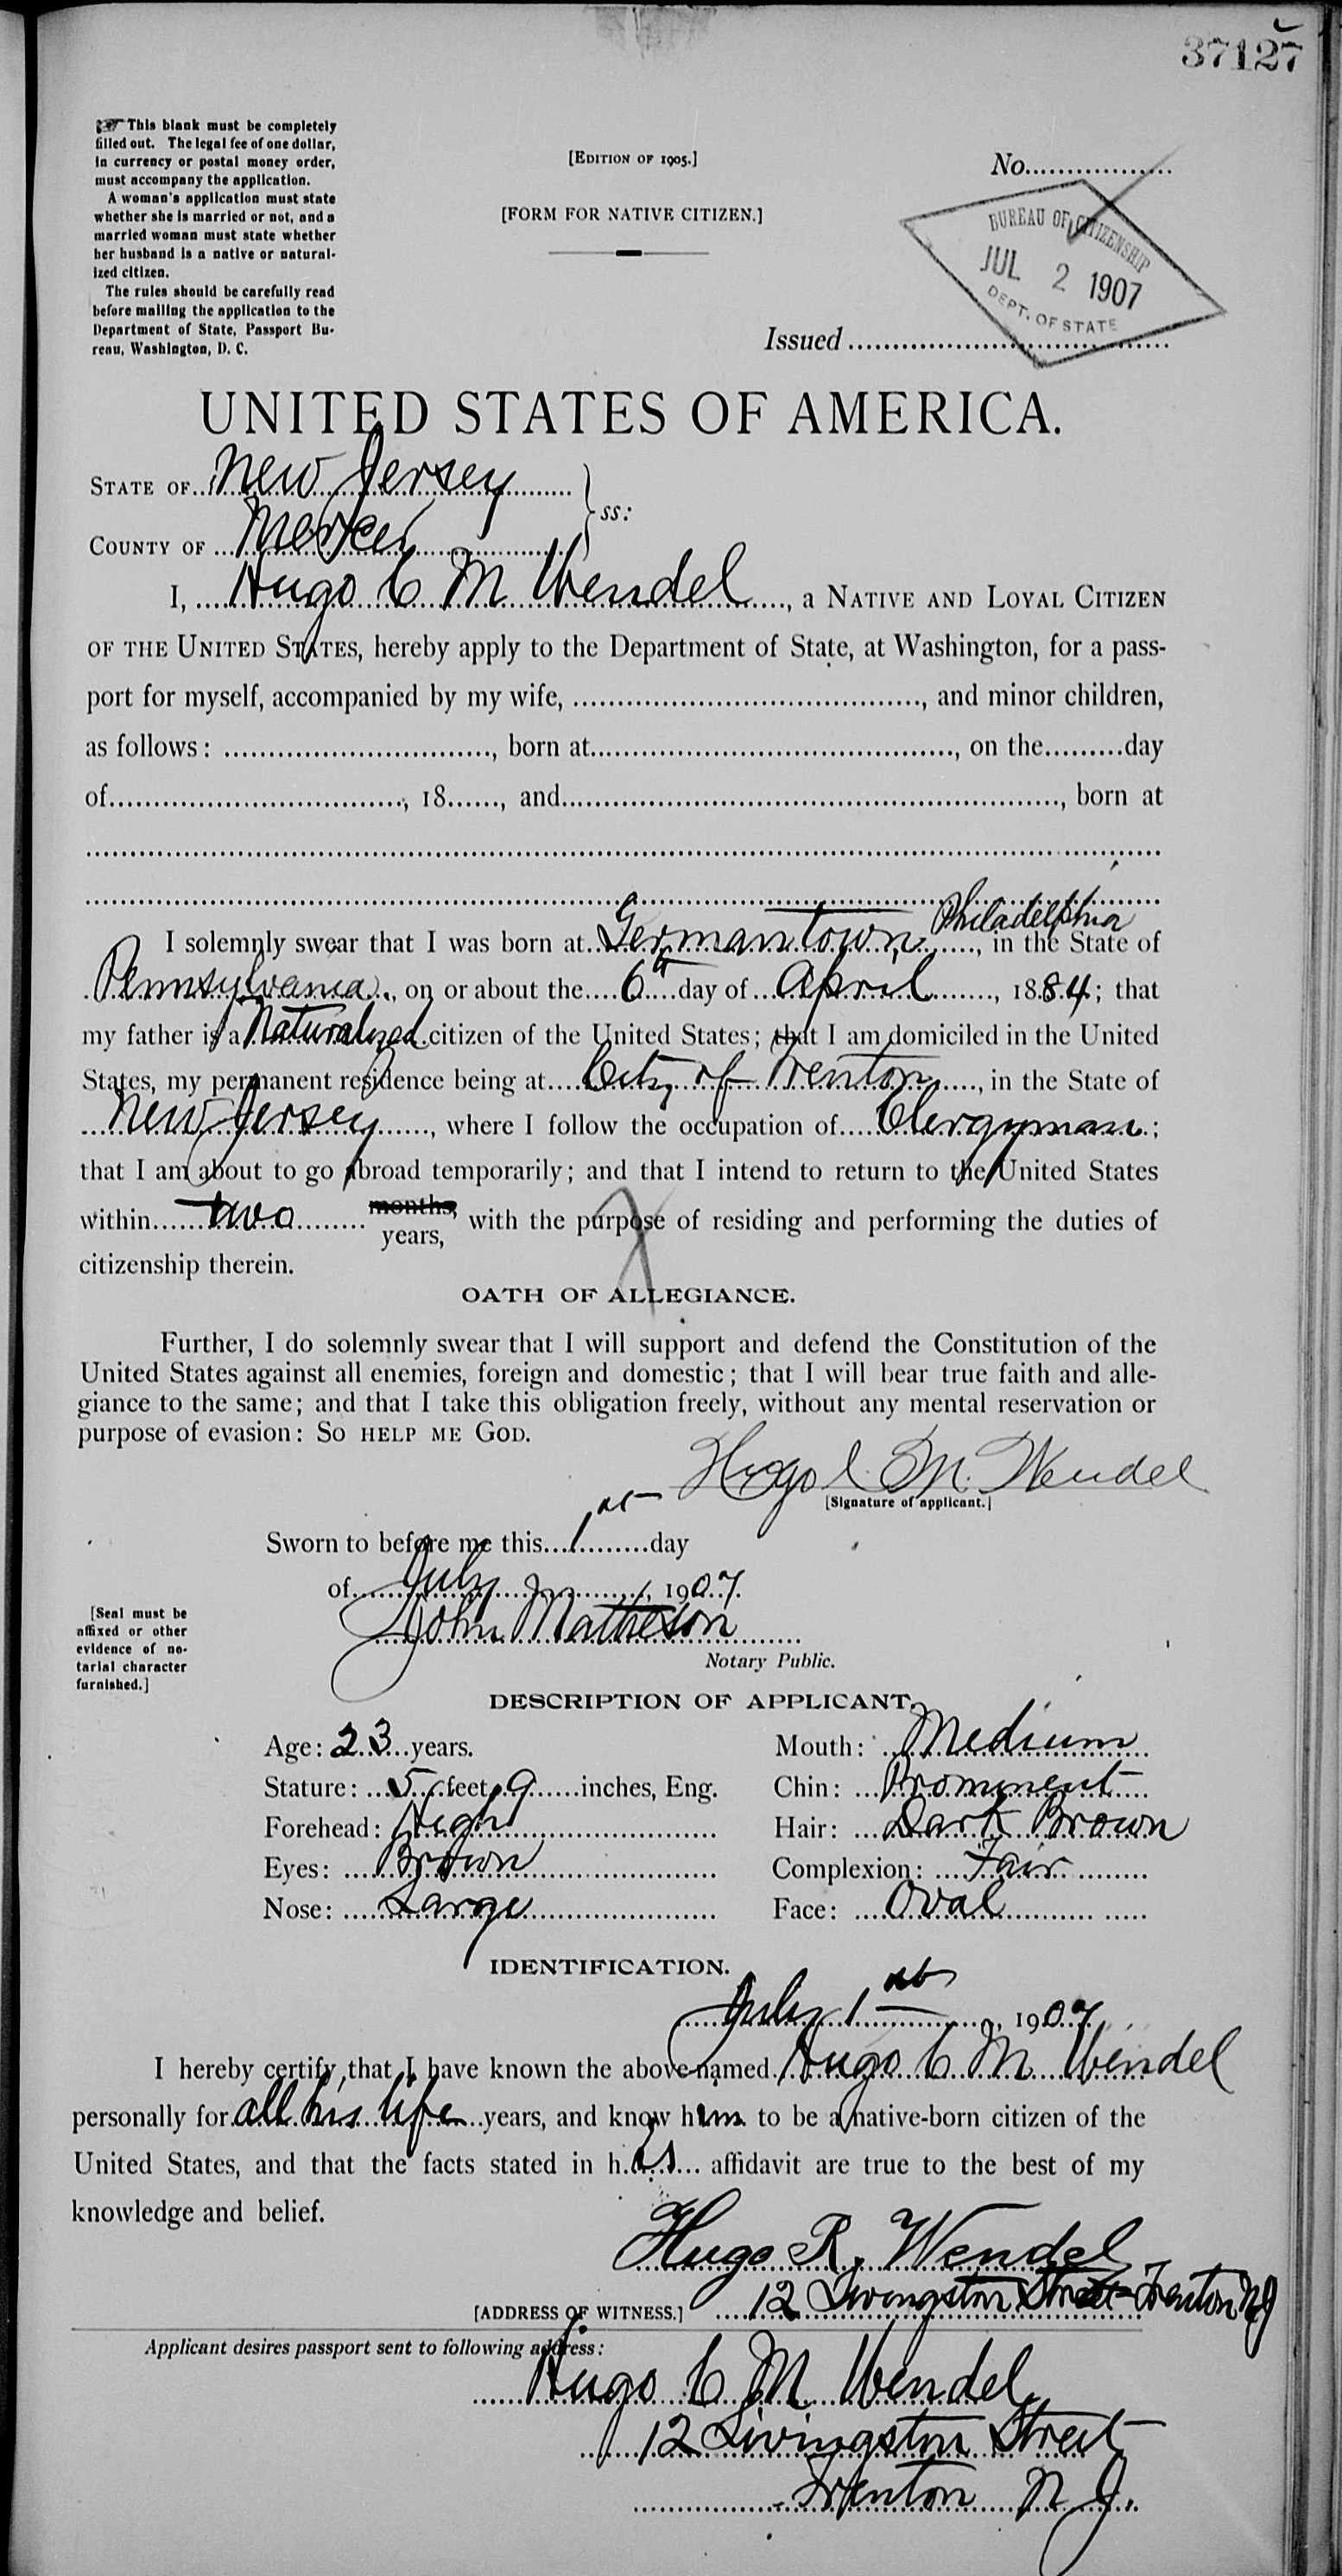 37127
☞ This blank must be completely
filled out. The legal fee of one dollar,
in currency or postal money order,
must accompany the application.
A woman's application must state
whether she is married or not, and a
married woman must state whether
her husband is a native or natural-
ized citizen.
The rules should be carefully read
before mailing the application to the
Department of State, Passport Bu-
reau, Washington, D. C.
[EDITION OF 1905.]
[FORM FOR NATIVE CITIZEN.]
No..................
BUREAU OF CITIZENSHIP
JUL 2 1907
DEPT. OF STATE
Issued ........................................
UNITED STATES OF AMERICA.
STATE OF New Jersey
COUNTY OF Mercer } ss:
I, Hugo C M Wendel, a NATIVE AND LOYAL CITIZEN
OF THE UNITED STATES, hereby apply to the Department of State, at Washington, for a pass-
port for myself, accompanied by my wife, ......................................, and minor children,
as follows: ............................., born at......................................., on the.........day
of................................, 18......, and......................................................, born at
................................................................................
................................................................................
I solemnly swear that I was born at Germantown Philadelphia, in the State of
Pennsylvania, on or about the 6th day of April, 1884; that
my father is a Naturalized citizen of the United States; that I am domiciled in the United
States, my permanent residence being at City of Trenton, in the State of
New Jersey, where I follow the occupation of Clergyman;
that I am about to go abroad temporarily; and that I intend to return to the United States
within two months, years, with the purpose of residing and performing the duties of
citizenship therein.
OATH OF ALLEGIANCE.
Further, I do solemnly swear that I will support and defend the Constitution of the
United States against all enemies, foreign and domestic; that I will bear true faith and alle-
giance to the same; and that I take this obligation freely, without any mental reservation or
purpose of evasion: SO HELP ME GOD.
Hugo C. M. Wendel
[Signature of applicant.]
Sworn to before me this 1st day
of July, 1907.
John Matheson
Notary Public.
[Seal must be
affixed or other
evidence of no-
tarial character
furnished.]
DESCRIPTION OF APPLICANT.
Age: 23 years. Mouth: Medium
Stature: 5 feet 9 inches, Eng. Chin: Prominent
Forehead: High Hair: Dark Brown
Eyes: Brown Complexion: Fair
Nose: Large Face: Oval
IDENTIFICATION.
July 1st, 1907
I hereby certify that I have known the above-named Hugo C M Wendel
personally for all his life years, and know him to be a native-born citizen of the
United States, and that the facts stated in his affidavit are true to the best of my
knowledge and belief.
Hugo R. Wendel
[ADDRESS OF WITNESS.] 12 Livingston Street Trenton NJ
Applicant desires passport sent to following address:
Hugo C M Wendel
12 Livingston Street
Trenton N J.